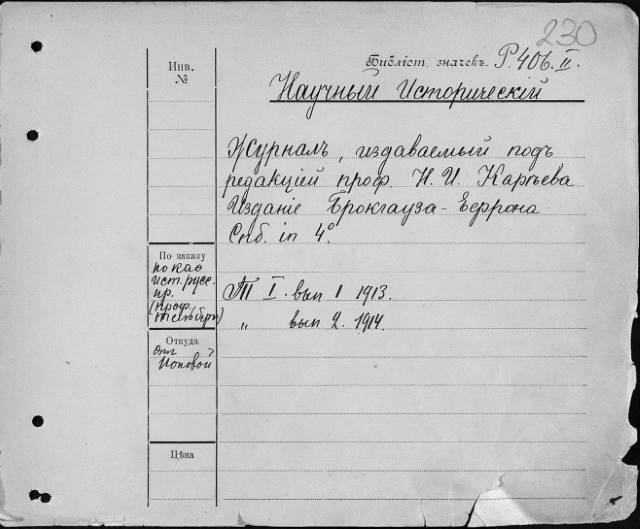 230
Библіот. значекъ. Р.406.II.
Научный Историческій
Журналъ, издаваемый подъ
редакціей проф. Н. И. Карѣева
Изданіе Брокгауза-Ефрона
Спб. in 4º.
Т I. вып 1 1913.
„ вып 2. 1914.
Инв.
№
По заказу
по каѳ
ист. русс.
пр.
(проф.
Откуда
отъ
Поповой
Цѣна